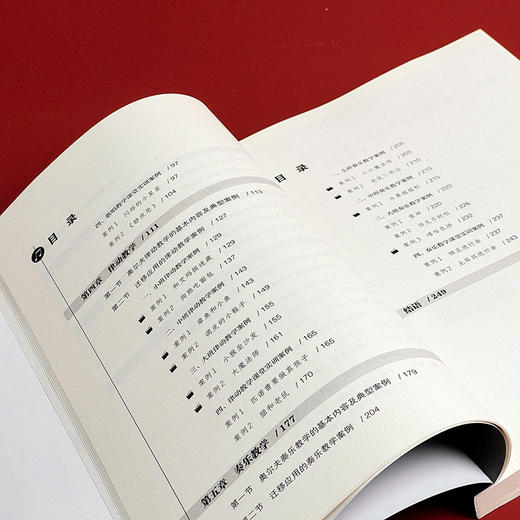 目 录
四、歌唱教学课堂实训案例 /97
案例1 闪烁的小星星 /97
案例2 《静夜思》 /104
第四章 律动教学 /111
第一节 奥尔夫律动教学的基本内容及典型案例 /113
第二节 迁移应用的律动教学案例 /127
一、小班律动教学案例 /129
案例1 和艾玛捉迷藏 /129
案例2 狗熊吃面包 /137
二、中班律动教学案例 /143
案例1 章鱼和小鱼 /143
案例2 调皮的小鞋子 /149
三、大班律动教学案例 /155
案例1 小猴坐沙发 /155
案例2 大魔法师 /161
四、律动教学课堂实训案例 /165
案例1 匹诺曹要做真孩子 /165
案例2 猫和老鼠 /170
第五章 奏乐教学 /177
第一节 奥尔夫奏乐教学的基本内容及典型案例 /179
第二节 迁移应用的奏乐教学案例 /204
目 录
一、小班奏乐教学案例 /205
案例1 小小魔法师 /205
案例2
二、中班奏乐教学案例
案例1
案例2 /220
三、大班奏乐教学案例 /220
案例1 雷神 /227
案例2
四、奏乐教学课堂实训案例
案例1 拍皮进行曲
案例2 /243
结语 /249